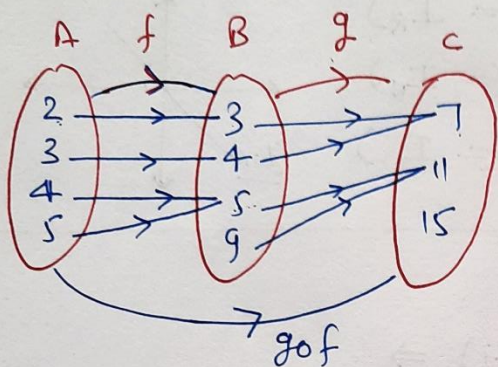 A f B g C
2 3 7
3 4 11
4 5 15
5 9
gof